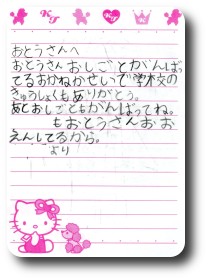 おとうさんへ
おとうさんおしごとがんばっ
てるおかねかせいで学校の
きゅうしょくもありがとう。
あとおしごともがんばってね。
もおとうさんおお
えんしてるから。
より